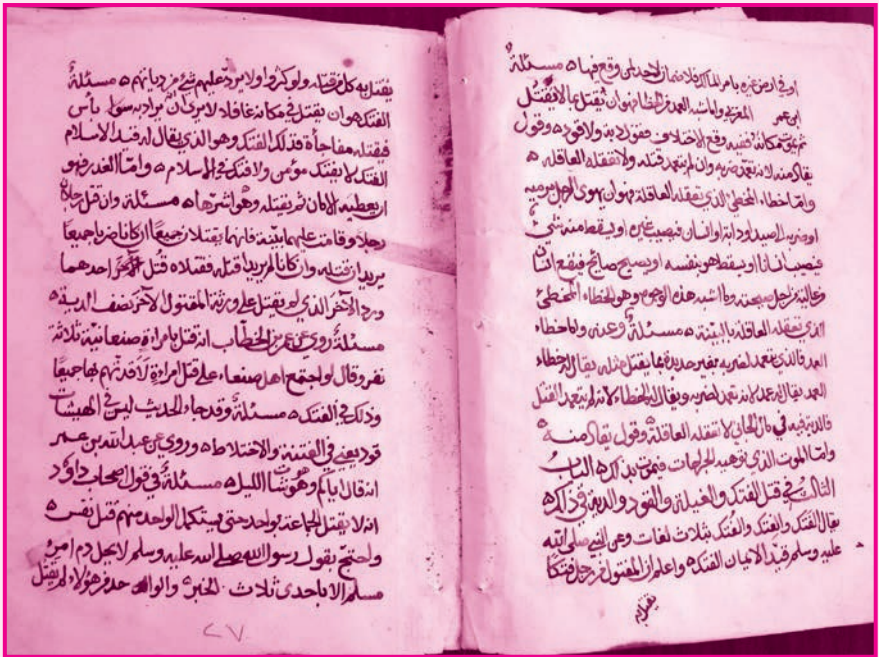 او في ارض غيره بامر المالك فلا ضمان لاحد لمن وقع فيها ه مسئلة
ابن عمر المعري وما اشبه العمد من الخطا فهو ان يقتل بما لا يقتل
ثم مكانه ففيه وقع الاختلاف فقول دية ولا قود ه وقول
يقاد منه لانه تعمد ضربه وان لم يتعمد قتله ولا تعقله العاقلة ه
واما خطاء المخطئ الذي تعقله العاقلة فهو ان يهوي الرجل برميه
او ضربه الى صيد او دابة او انسان فيصيب غيره او يسقط منه شيء
فيصيب انسانا او يسقط هو بنفسه او يصيح صائح فيقع انسان
من اجل صيحته وما اشبه هذه الوجوه وهو الخطاء المخطئ
الذي تعقله العاقلة بالبينة ه مسئلة وعنه واما خطاء
العمد فالذي يتعمد لضربه بغير حديدة مما يقتل مثله يقال له خطاء
العمد يقال له عمد لانه تعمد لضربه ويقال له الخطاء لانه لم يتعمد القتل
فالدية فيه في مال الجاني لا تعقله العاقلة وقول يقاد منه ه
واما الموت الذي توهبه الجراحات فيموت بذلك ه الباب
الثالث في قتل الفتك والغيلة والقود والدية في ذلك ه
يقال الفتك والفتك والفتك بثلاث لغات وعن النبي صلى الله
عليه وسلم قيد الايمان الفتك ه واعلم ان المقتول من رجل فتكا
يقتل به
يقتل به كل من قتله ولو كثروا ولا يرد عليهم شيء من دياتهم ه مسئلة
الفتك هو ان يقتل في مكانه غافلا لا يرى ان يراد به سوء ولا باس
فيقتله مفاجأة فذلك الفتك وهو الذي يقال له قيد الاسلام
الفتك لا يفتك مؤمن ولا فتك في الاسلام ه واما الغدر فهو
ان يعطيه الامان ثم يقتله وهو اشرها ه مسئلة وان قتل رجلان
رجلا وقامت عليهما بينة فانهما يقتلان جميعا ان كانا ضرباه جميعا
يريدان قتله وان كانا لم يريدا قتله فقتلاه قتل احدهما
ورد الآخر الذي لم يقتل على ورثة المقتول الآخر نصف الدية ه
مسئلة روي عن عمر بن الخطاب انه قتل بامراة صنعانية ثلاثة
نفر وقال لو اجتمع اهل صنعاء على قتل امراة لاقدتهم بها جميعا
وذلك في الفتك ه مسئلة وقد جاء الحديث ليس في الهيشات
قود يعني في الفتنة والاختلاط ه وروي عن عبد الله بن عمر
انه قال اياكم وهوشات الليل ه مسئلة في قول اصحاب داؤد
انه لا يقتل الجماعة بواحد حتى يستكمل الواحد منهم قتل نفس ه
واحتج بقول رسول الله صلى الله عليه وسلم لا يحل دم امرئ
مسلم الا باحدى ثلاث الخبر والواحد من هؤلاء لم يقتل
٢٧